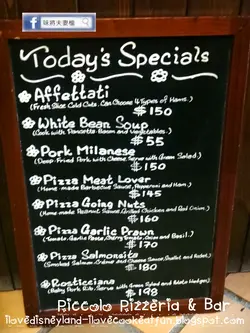 味將夫妻檔
Today's Specials
Affettati
(Fresh Slice Cold Cuts, Can Choose 4 Types of Hams.)
$150
White Bean Soup
(Cook with Pancetta Bacon and Vegetables.)
$55
Pork Milanese
(Deep-Fried Pork with Cheese, Serve with Green Salad.)
$145
Pizza Meat Lover
(Home-made Barbecue Sauce, Pepperoni and Ham)
$145
Pizza Going Nuts
(Home-made Peanut Sauce, Grilled Chicken and Red Onion.)
$160
Pizza Garlic Prawn
(Tomato, Garlic Prawn, Cherry Tomato, Onion and Basil.)
$170
Pizza Salmonsita
(Smoked Salmon, Crème and Cheese Sauce, and Rocket.)
$180
Rosticciana
(Baby Pork Rib, Serve with Green Salad and Potato Wedges)
$198
Piccolo Pizzeria & Bar
ilovedisneyland-ilovecookeatfun.blogspot.com